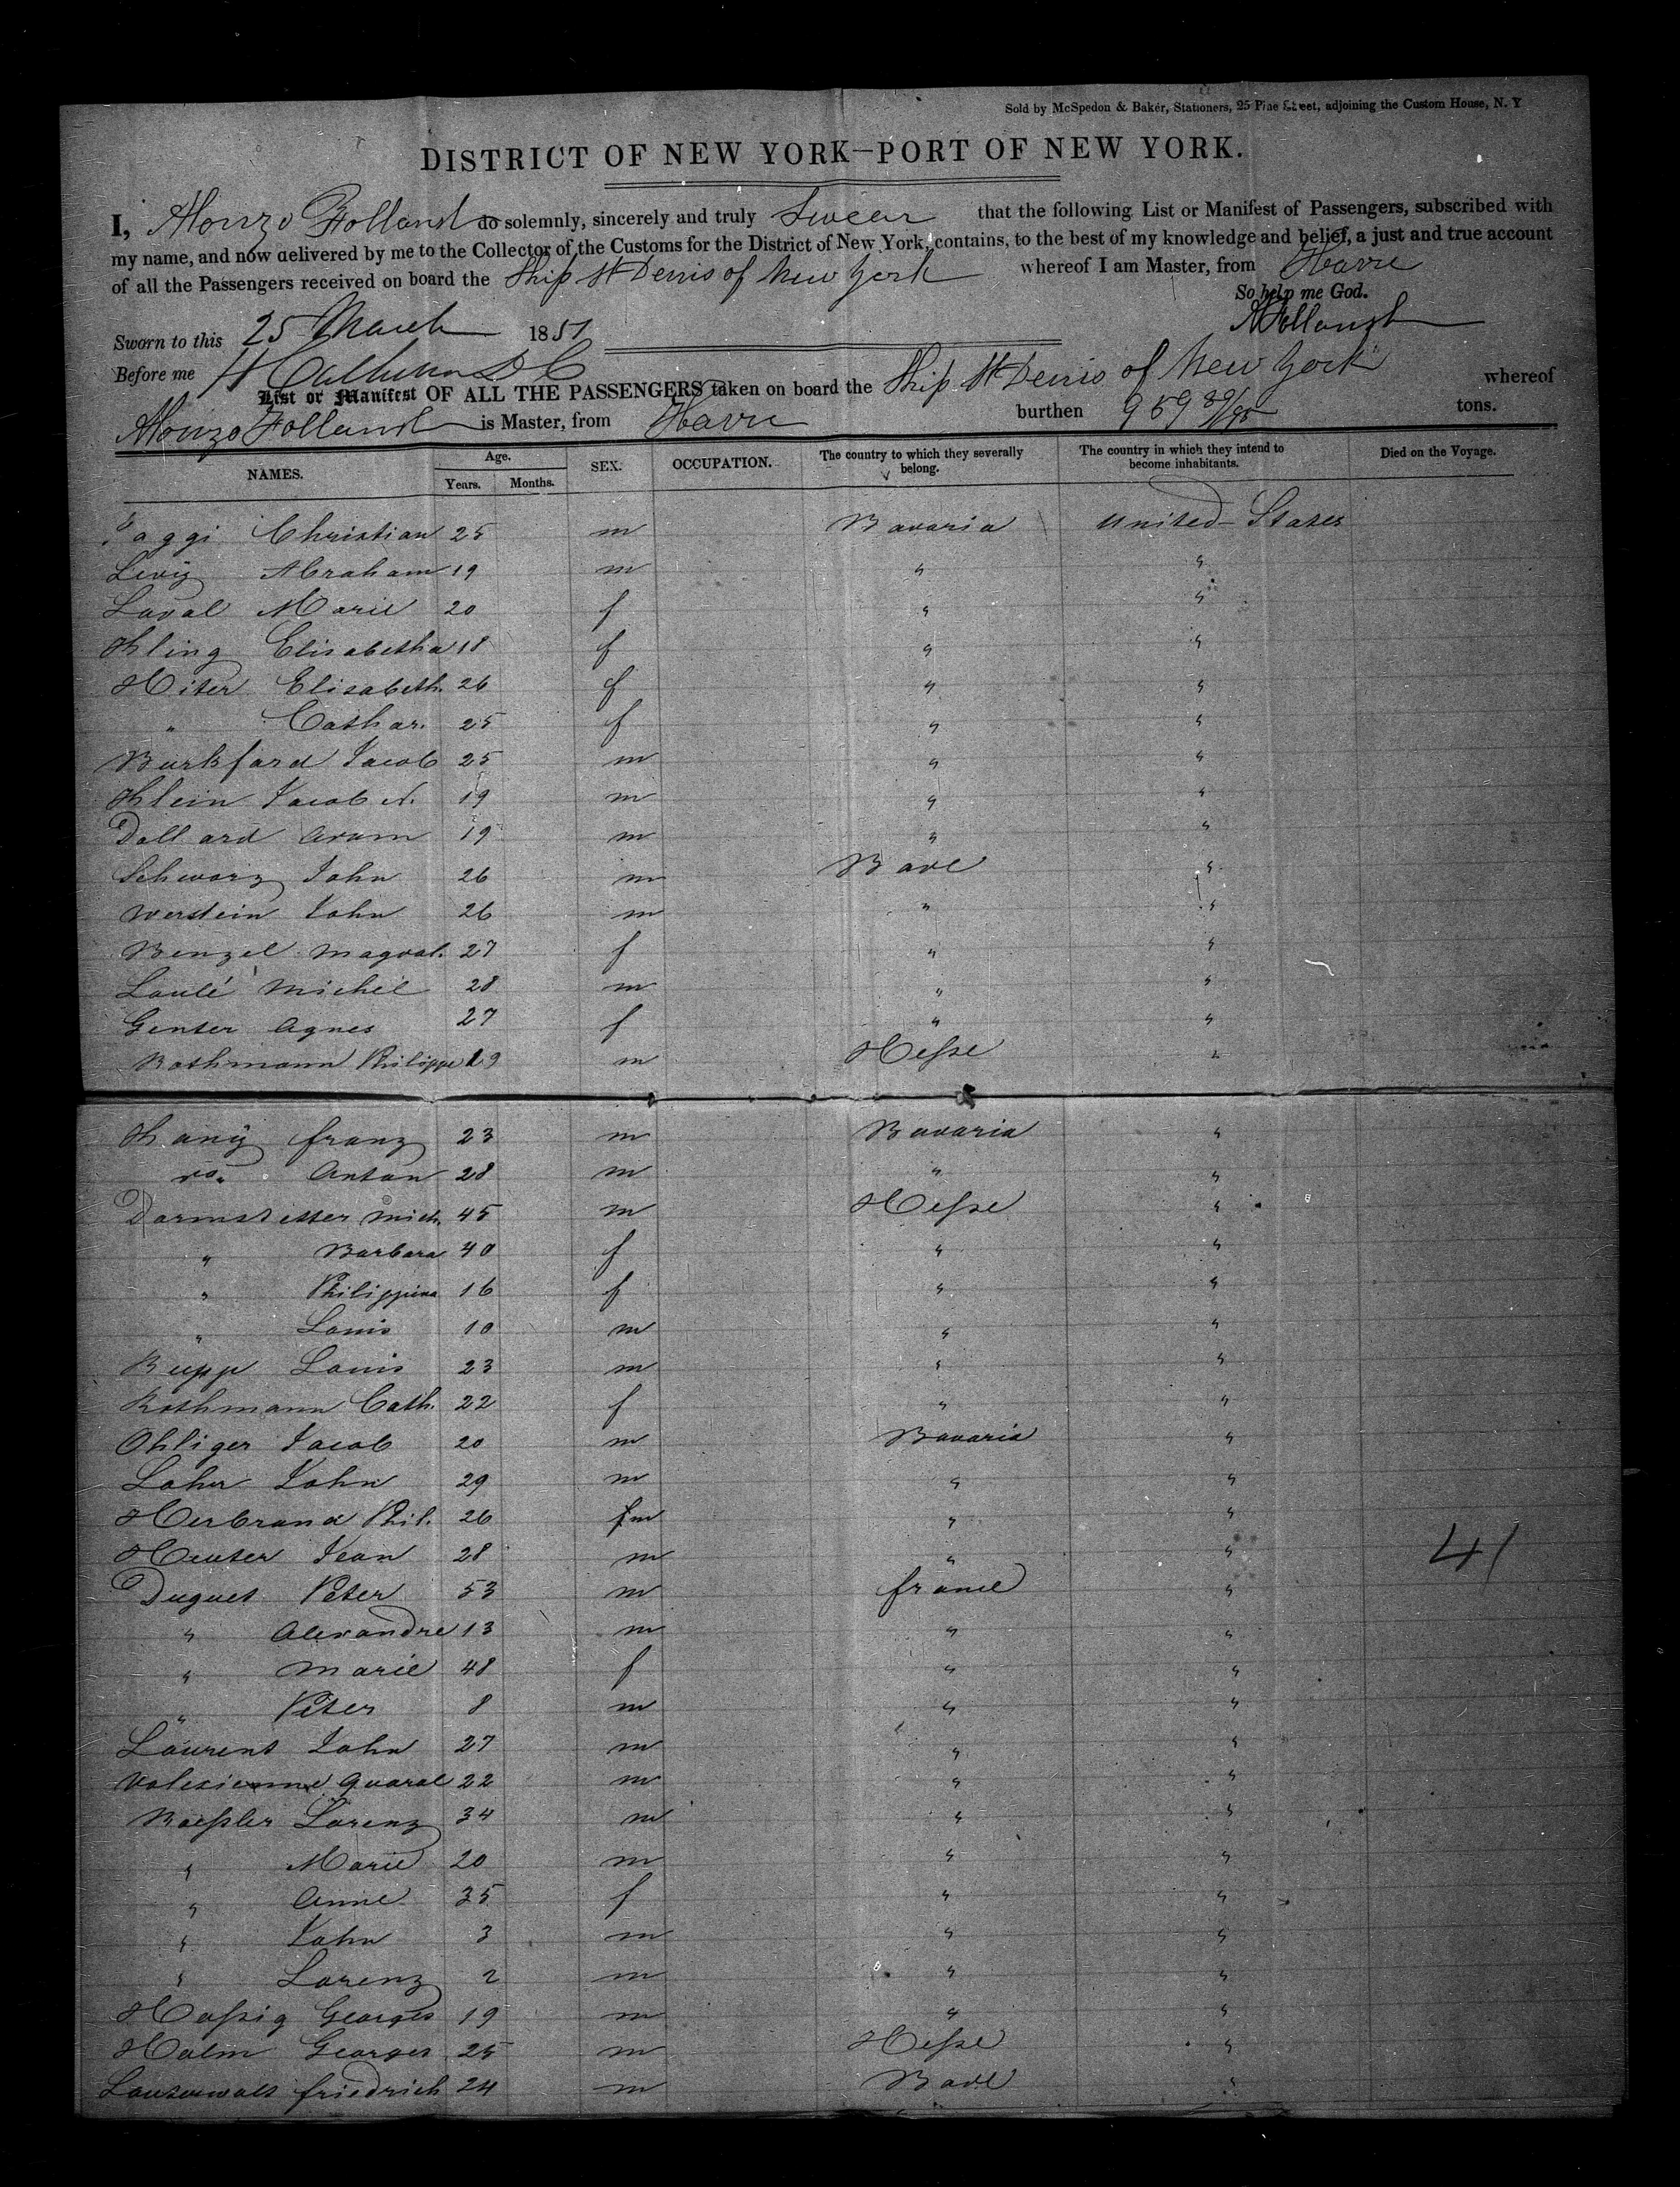 Sold by McSpedon & Baker, Stationers, 25 Pine Street, adjoining the Custom House, N. Y
DISTRICT OF NEW YORK—PORT OF NEW YORK.
I, Alonzo Follansb do solemnly, sincerely and truly Swear that the following List or Manifest of Passengers, subscribed with
my name, and now delivered by me to the Collector of the Customs for the District of New York, contains, to the best of my knowledge and belief, a just and true account
of all the Passengers received on board the Ship St Denis of New York whereof I am Master, from Havre
So help me God.
Sworn to this 25 March 1851 A Follansb
Before me
List or Manifest OF ALL THE PASSENGERS taken on board the Ship St Denis of New York whereof
Alonzo Follansb is Master, from Havre burthen 959 89/95 tons.
NAMES. Age. Years. Months. SEX. OCCUPATION. The country to which they severally belong. The country in which they intend to become inhabitants. Died on the Voyage.
Christian 25 m Bavaria United States
Levÿ Abraham 19 m " "
Laval Marie 20 f " "
Kling Elisabetha 18 f " "
Hiter Elisabeth. 26 f " "
" Cathar. 25 f " "
Burkhard Jacob 25 m " "
Klein Jacob A. 19 m " "
Dellard Aram 19 m " "
Schwarz John 26 m Bade "
Werstein John 26 m " "
Benzel Magdal. 27 f " "
Laulé Michel 28 m " "
Genter Agnes 27 f " "
Rothmann Philippe 29 m Hesse "
Hanÿ franz 23 m Bavaria "
do. Anton 28 m " "
Darmstetter Mich. 45 m Hesse "
" Barbara 40 f " "
" Philippina 16 f " "
" Louis 10 m " "
Rupp Louis 23 m " "
Rothmann Cath. 22 f " "
Ohliger Jacob 20 m Bavaria "
Laher John 29 m " "
Herbrand Phil. 26 m " "
Heuter Jean 28 m " " 41
Duguet Peter 53 m france "
" Alexandre 13 m " "
" Marie 48 f " "
" Peter 8 m " "
Laurent John 27 m " "
22 m " "
Roessler Lorenz 34 m " "
" Marie 20 m " "
" Anne 35 f " "
" John 3 m " "
" Lorenz 2 m " "
Hassig Georges 19 m " "
Halm Georges 25 m Hesse "
Lautenwalt friedrich 24 m Bade "